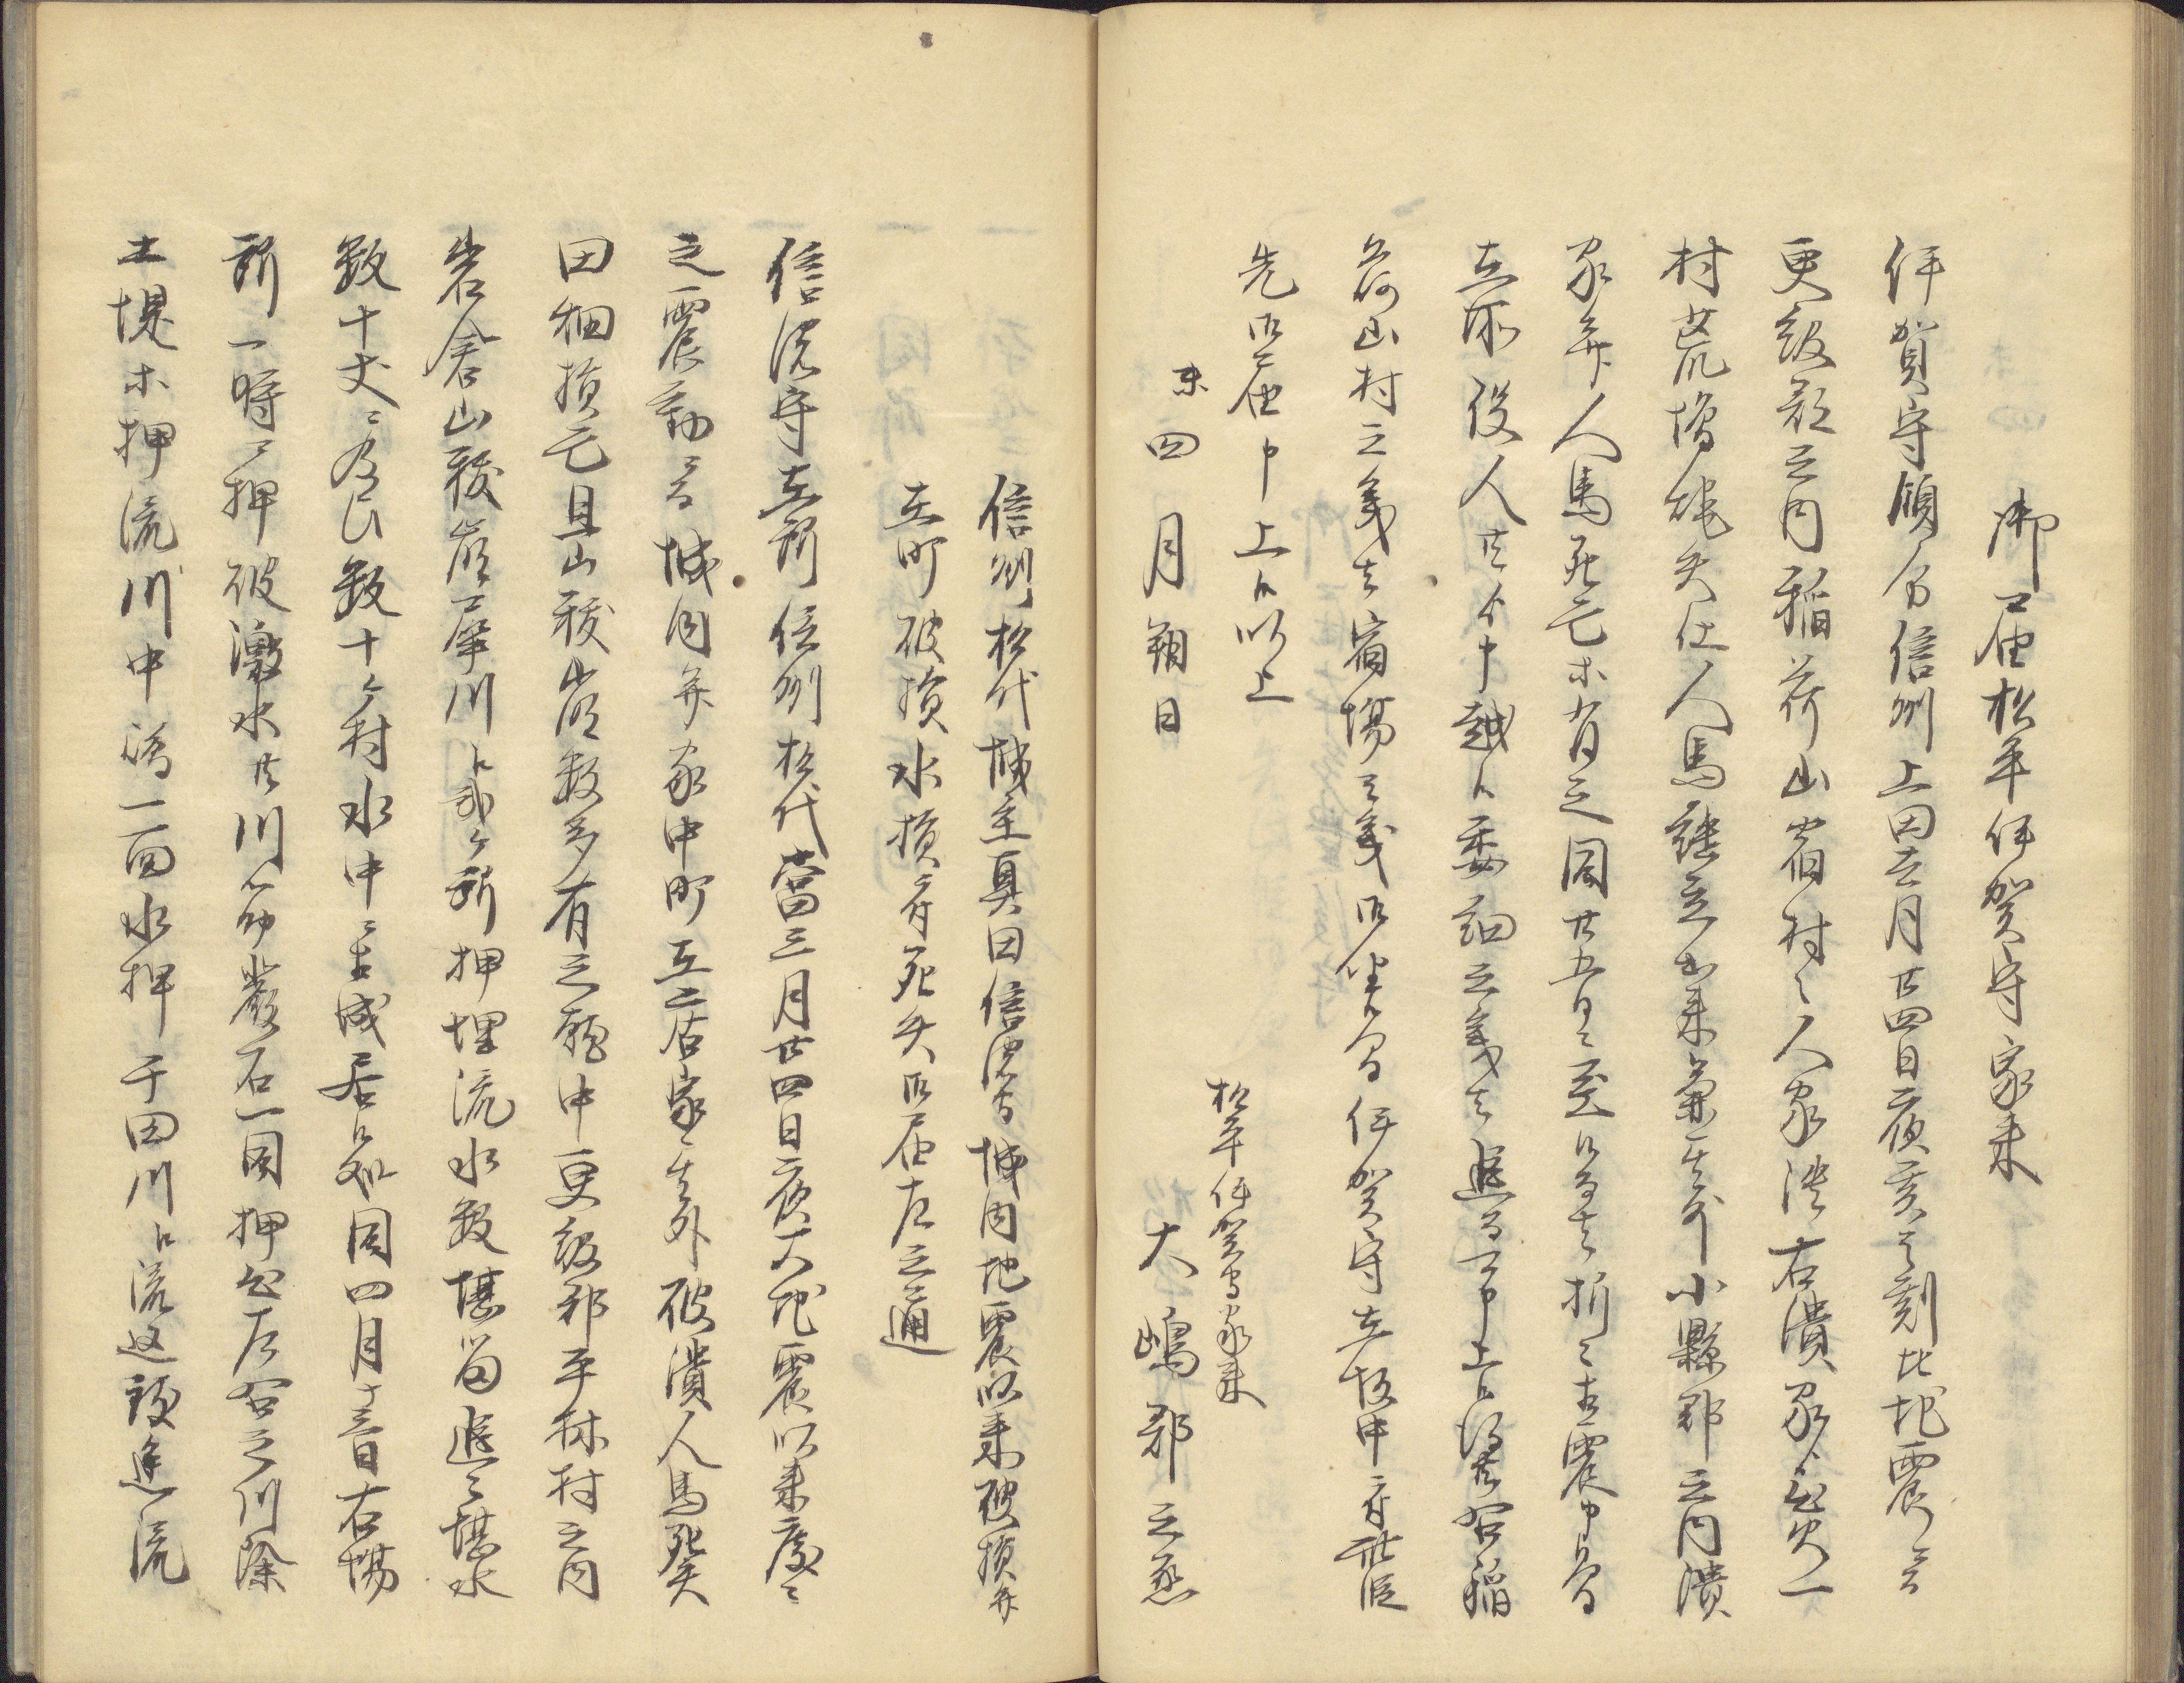 御届松平伊賀守家来
伊賀守領分信州上田去月廿四日夜亥之刻比地震ニ而
更級郡之内稲荷山宿村々人家潰右潰家ゟ出火一
村荒増焼失仕人馬怪我出来兼其外小縣郡之内潰
家并人馬死亡木有之同廿五日ニ至候而も折々志震申候間
在所役人共ゟ申越候委細之義者追而可申上候得共右稲
荷山村之義者宿場之義御座候間伊賀守在坂中ニ付此段
先御届申上候以上
未四月朔日
松平伊賀守家来
大嶋郡之丞
信州松代城主真田信濃守城内地震以来破損并
在町破損水損ニ付死失御届左之通
信濃守在所信州松代当三月廿四日夜大地震以来度々
之震動ニ而城内并家中町在居家其外破潰人馬死失
田畑損亡且山抜崩数多有之就中更級郡平林村之内
岩倉山抜崩犀川江弐ヶ所押埋流水数堪留追々堪水
数十丈ニ及ひ数十ヶ村水中ニ相成居候処同四月十三日右場
所一時ニ押破激水共川筋巌石一同押出左右之川除
土堤木押流川中嶋一面水押千田川江流込頓逆流